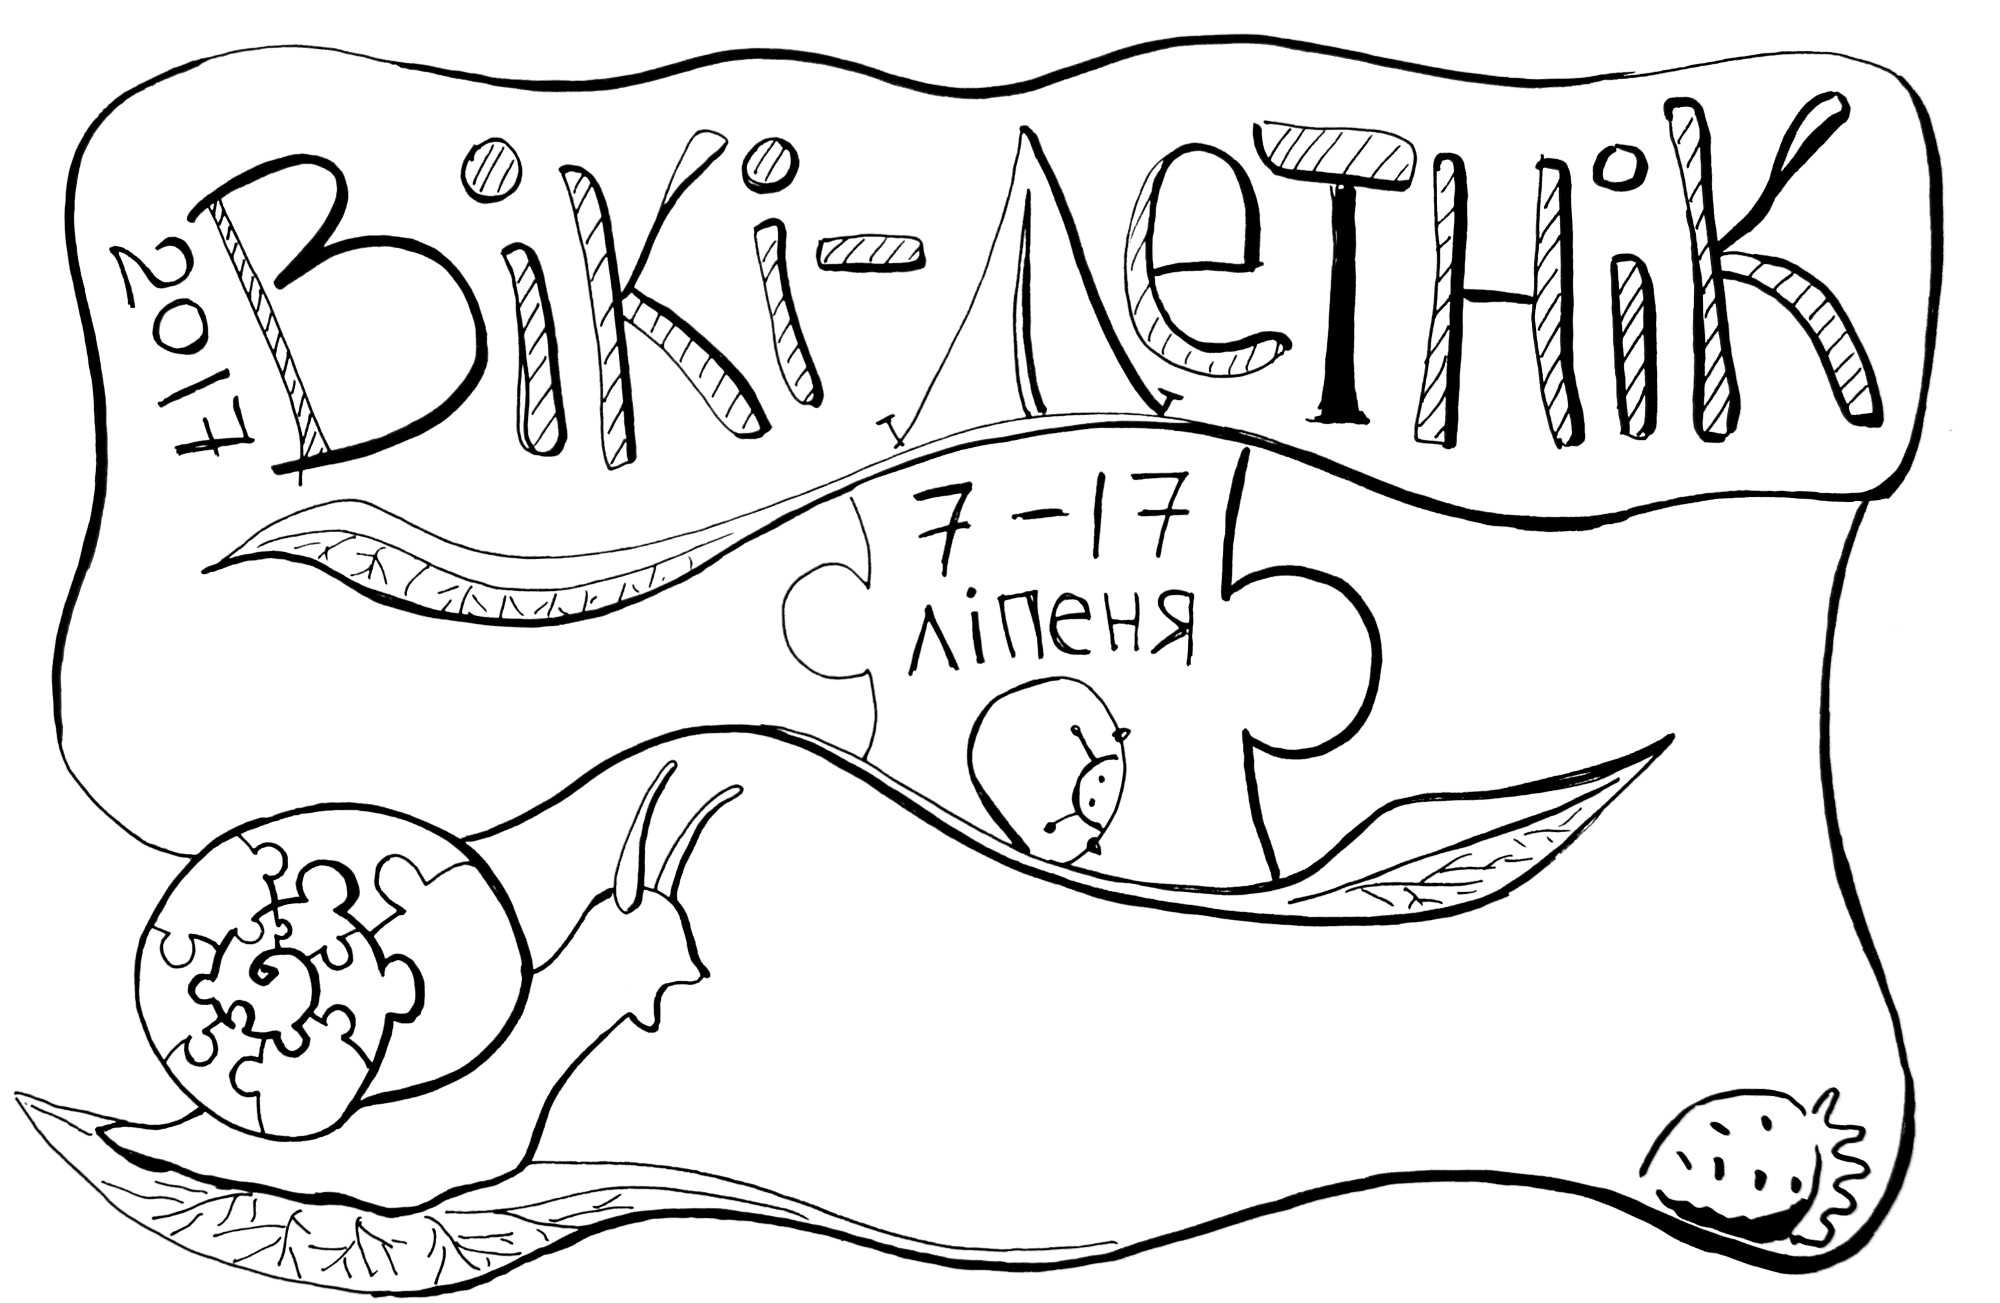 2017
Вікі-Летнік
7-17
ліпеня